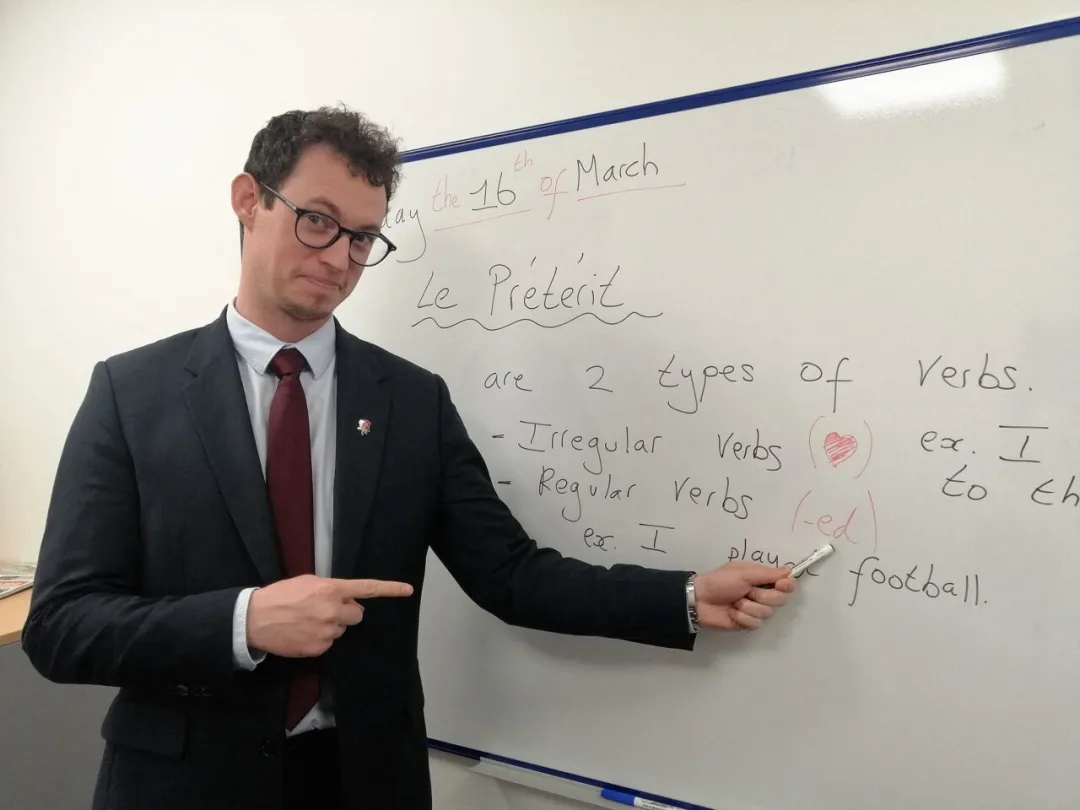 the 16th of March
Le Prétérit
are 2 types of verbs.
- Irregular verbs (♥) ex. I
to th
- Regular verbs (-ed)
ex. I football.